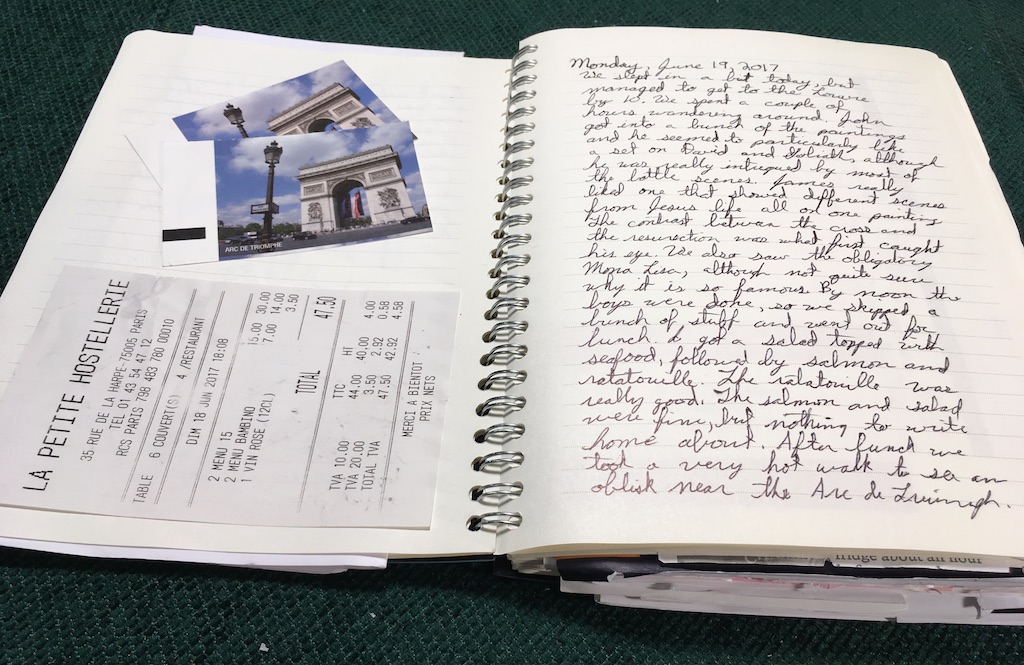 ARC DE TRIOMPHE
LA PETITE HOSTELLERIE
35 RUE DE LA HARPE-75005 PARIS
TEL 01 43 54 47 12
RCS PARIS 798 483 780 00010
TABLE 6 COUVERT(S) 4 /RESTAURANT
DIM 18 JUN 2017 18:08
2 MENU 15 15,00 30.00
2 MENU BAMBINO 7,00 14.00
1 VIN ROSE (12CL) 3.50
TOTAL 47.50
TTC HT
TVA 10.00 44.00 40.00 4.00
TVA 20.00 3.50 2.92 0.58
TOTAL TVA 47.50 42.92 4.58
MERCI A BIENTOT
PRIX NETS
Monday, June 19, 2017
We slept in a bit today, but
managed to get to the Louvre
by 10. We spent a couple of
hours wandering around. John
got into a bunch of the paintings
and he seemed to particularly like
a set on David and Goliath, although
he was really intrigued by most of
the battle scenes. James really
liked one that showed different scenes
from Jesus life all on one painting
The contrast between the cross and
the resurection was what first caught
his eye. We also saw the obligatory
Mona Lisa, although not quite sure
why it is so famous. By noon the
boys were done, so we skipped a
bunch of stuff and went out for
lunch. I got a salad topped with
seafood, followed by salmon and
ratatouille. The ratatouille was
really good. The salmon and salad
were fine, but nothing to write
home about. After lunch we
took a very hot walk to see an
oblisk near the Arc de Triumph.
fridge about an hour